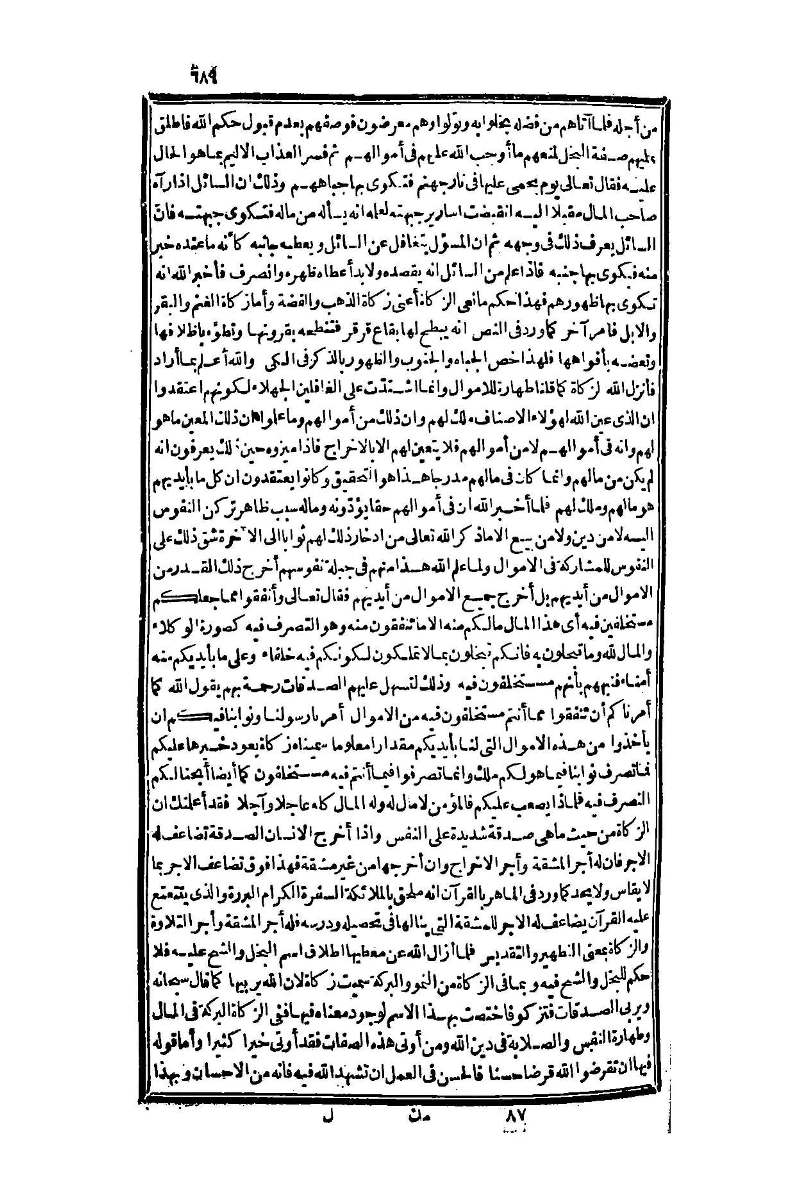 ٦٨٩
من أجله فلما آتاهم من فضله بخلوا به وتولوا وهم معرضون فوصفهم بعدم قبول حكم الله فاطلق
عليهم صفة البخل لمنعهم ما أوجب الله عليهم فى أموالهم ثم فسر العذاب الاليم بما هو الحال
عليه فقال تعالى يوم يحمى عليها فى نار جهنم فتكوى بها جباههم وذلك ان السائل اذا رآه
صاحب المال مقبلا اليه انقبضت اسارير جبهته لعلمه انه يسأله من ماله فتكوى جبهته فان
السائل يعرف ذلك فى وجهه ثم ان المسؤل يتغافل عن السائل ويعطيه جانبه كأنه ما عنده خبر
منه فيكوى بها جنبه فاذا علم من السائل انه يقصده ولابد أعطاه ظهره وانصرف فأخبر الله انه
تكوى بها ظهورهم فهذا حكم مانعى الزكاة أعنى زكاة الذهب والفضة وأما زكاة الغنم والبقر
والابل فامر آخر كما ورد فى النص انه يبطح لها بقاع قرقر فتنطحه بقرونها وتطؤه باظلافها
وتعضه بأفواهها فلهذا خص الجباه والجنوب والظهور بالذكر فى الكى والله أعلم بما أراد
فأنزل الله الزكاة كما قلنا طهارة للاموال وانما اشتدت على الغافلين الجهلاء لكونهم اعتقدوا
ان الذى عين الله لهؤلاء الاصناف ملك لهم وان ذلك من أموالهم وما علموا ان ذلك المعين ما هو
لهم وانه فى أموالهم لا من أموالهم فلا يتعين لهم الا بالاخراج فاذا ميزوه حينئذ يعرفون انه
لم يكن من مالهم وانما كان فى مالهم مدرجا هذا هو التحقيق وكانوا يعتقدون ان كل ما بأيديهم
هو مالهم وملك لهم فلما أخبر الله ان فى أموالهم حقا يؤدونه وماله سبب ظاهر تركن النفوس
اليه لا من دين ولا من بيع الا ما ذكر الله تعالى من ادخار ذلك لهم ثوابا الى الآخرة شق ذلك على
النفوس للمشاركة فى الاموال ولما علم الله هذا منهم فى جبلة نفوسهم أخرج ذلك القدر من
الاموال من أيديهم بل أخرج جميع الاموال من أيديهم فقال تعالى وأنفقوا مما جعلكم
مستخلفين فيه أى هذا المال مالكم منه الا ما تنفقون منه وهو التصرف فيه كصورة الوكلاء
والمال لله وما تبخلون به فانكم تبخلون بما لا تملكون لكونكم فيه خلفاء وعلى ما بأيديكم منه
أمناء فنبههم بأنهم مستخلفون فيه وذلك لتسهل عليهم الصدقات رحمة بهم يقول الله كما
أمرناكم أن تنفقوا مما أنتم مستخلفون فيه من الاموال أمرنا رسولنا ونوابنا فيكم ان
يأخذوا من هذه الاموال التى لنا بأيديكم مقدارا معلوما سميناه زكاة يعود خبرها عليكم
فما تصرف نوابنا فيما هو لكم ملك وانما تصرفوا فيما أنتم فيه مستخلفون كما أيضا أبحنا لكم
التصرف فيه فلماذا يصعب عليكم فالمؤمن لا مال له وله المال كله عاجلا وآجلا فقد أعلمتك ان
الزكاة من حيث ما هى صدقة شديدة على النفس واذا أخرج الانسان الصدقة تضاعف له
الاجر فان له أجر المشقة وأجر الاخراج وان أخرجها من غير مشقة فهذا فوق تضاعف الاجر بما
لا يقاس ولا يحد كما ورد فى الماهر بالقرآن انه ملحق بالملائكة السفرة الكرام البررة والذى يتتعتع
عليه القرآن يضاعف له الاجر للمشقة التى ينالها فى تحصيله ودرسه فله أجر المشقة وأجر التلاوة
والزكاة بمعنى التطهير والتقديس فلما أزال الله عن معطيها اطلاق اسم البخل والشح عليه فلا
حكم للبخل والشح فيه وبما فى الزكاة من النمو والبركة سميت زكاة لان الله يربيها كما قال سبحانه
ويربى الصدقات فتزكو فاختصت بهذا الاسم لوجود معناه فيها ففى الزكاة البركة فى المال
وطهارة النفس والصلابة فى دين الله ومن أوتى هذه الصفات فقد أوتى خيرا كثيرا وأما قوله
فيها ان تقرضوا الله قرضا حسنا فالحسن فى العمل ان تشهد الله فيه فانه من الاحسان وبهذا
٨٧ مك ل